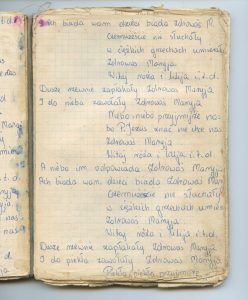 Ach biada wam dzieci biada Zdrowaś M.
Czemuzeście nie słuchały
w ciężkich grzechach umierały
Zdrowaś Maryja
Witaj róża i lilija i.t.d.
Dusze rzewnie zapłakały Zdrowaś Maryja
I do nieba zawołały Zdrowaś Maryja
Niebo niebo przyjmijże nas
bo P. Jezus znać nie chce nas
Zdrowaś Maryja
Witaj róża i lilija i t. d.
A niebo im odpowiada Zdrowaś Maryja
Ach biada wam dzieci biada Zdrowaś Mar
Czemuzeście nie słuchały
w ciężkich grzechach umier
Zdrowaś Maryja
Witaj róża i lilija i t.d.
Dusze rzewnie zapłakały Zdrowaś Maryja
I do piekła zawołały Zdrowaś Maryja
Piekło piekło przyjmijże